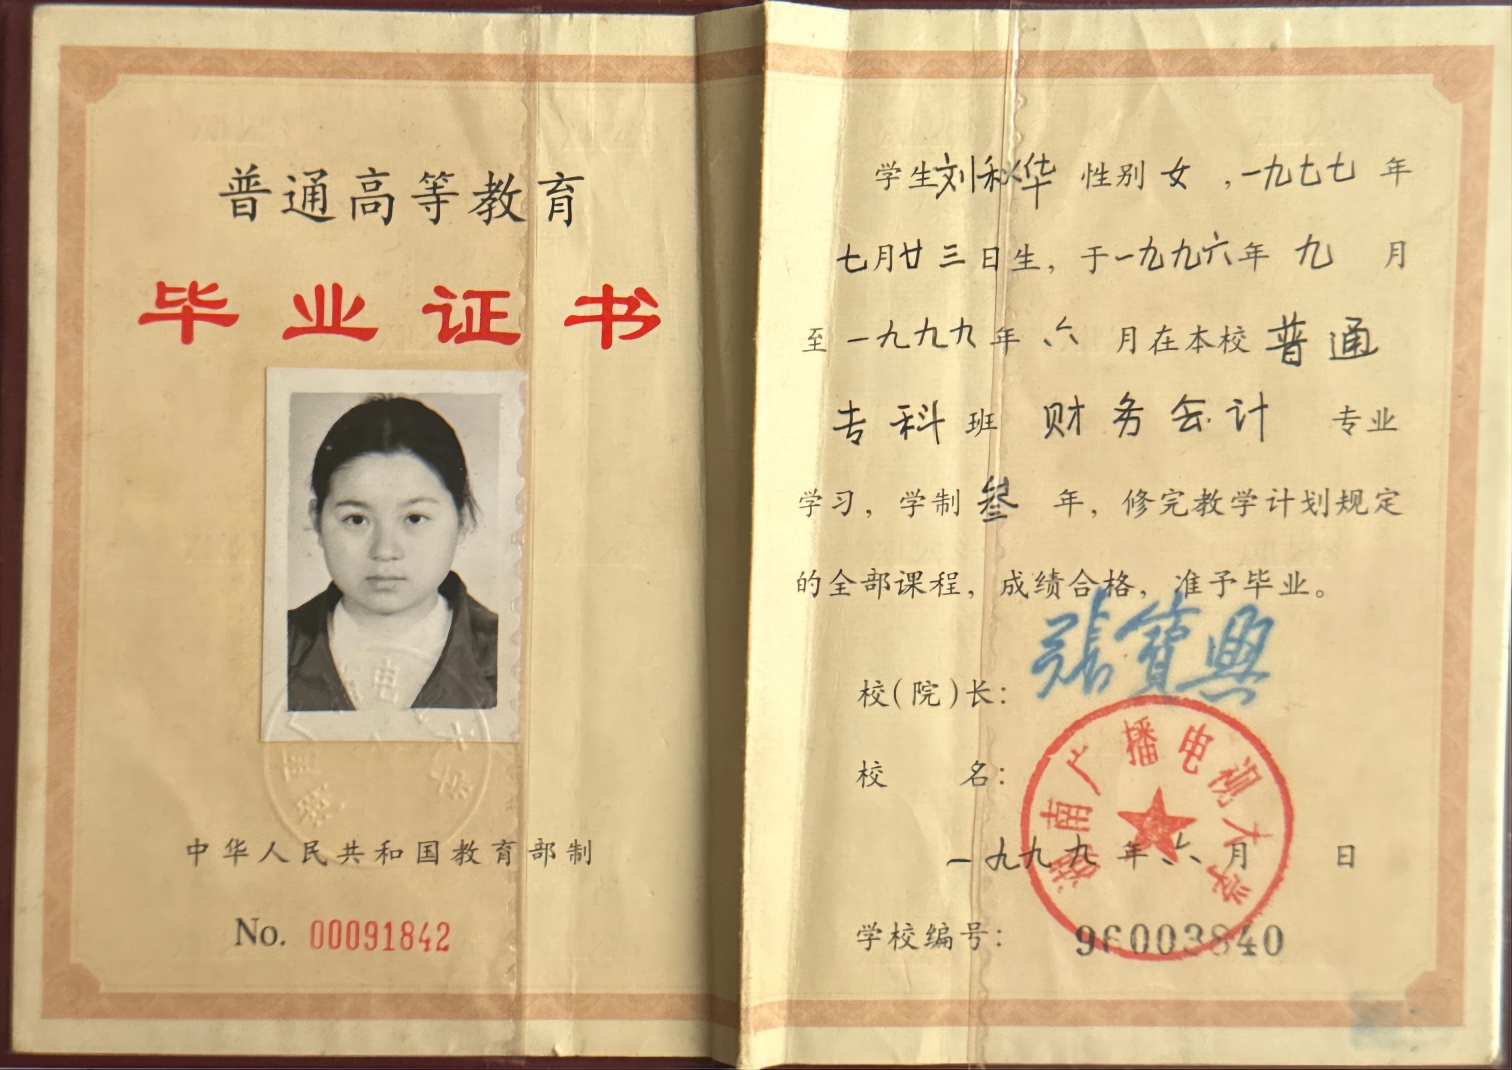 普通高等教育
毕业证书
中华人民共和国教育部制
No. 00091842
学生刘秋华 性别女，一九七七年
七月廿三日生，于一九九六年九月
至一九九九年六月在本校普通
专科班财务会计专业
学习，学制叁年，修完教学计划规定
的全部课程，成绩合格，准予毕业。
校（院）长：張寶興
校 名：
湖南广播电视大学
一九九九年六月 日
学校编号：96003840